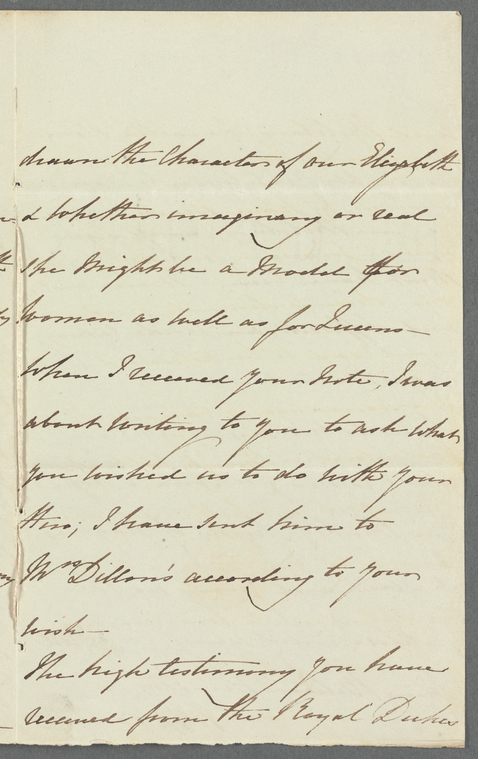 drawn the Character of our Elizabeth
& whether imaginary or real
she might be a Model for
women as well as for Queens—
When I received your note, I was
about writing to you to ask what
you wished us to do with your
Hero; I have sent him to
Mrs Dillon's according to your
wish—
The high testimony you have
received from the Royal Dukes